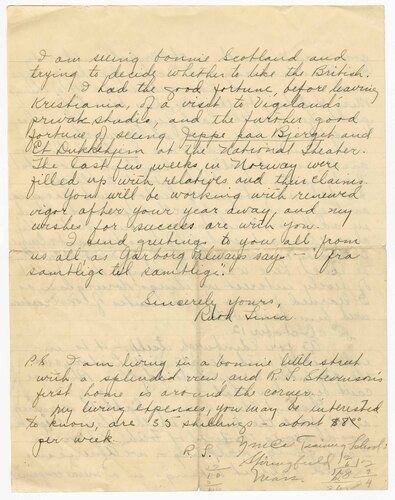 I am seeing bonnie Scotland and
trying to decide whether to like the British.
I had the good fortune, before leaving
Kristiania, of a visit to Vigelands
private studio, and the further good
fortune of seeing Jeppe paa Bjerget and
Et Dukkehjem at the National Theater.
The last few weeks in Norway were
filled up with relatives and their claims.
You will be working with renewed
vigor after your year away, and my
wishes for success are with you.
I send greetings to you all from
us all, as Garborg always says - "fra
samtlige til samtlige".
Sincerely yours,
Ruth
P.S. I am living in a bonnie little street
with a splendid view, and R. L. Stevenson's
first home is around the corner.
My living expenses, you may be interested
to know, are 35 shillings - about
per week.
R. S.
Training School
Springfield
Mass.